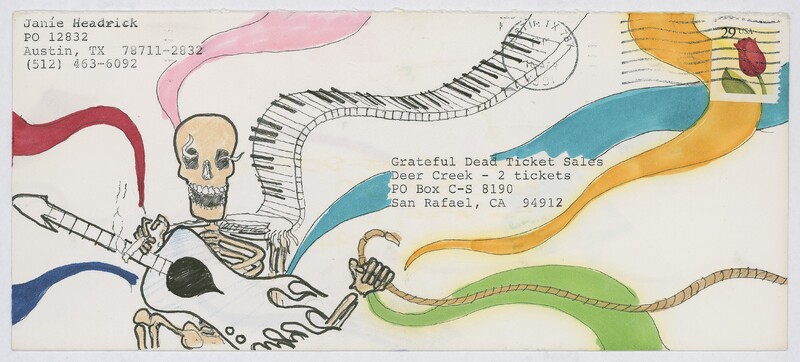 Janie Headrick
PO 12832
Austin, TX 78711-2832
(512) 463-6092
29 USA
Grateful Dead Ticket Sales
Deer Creek - 2 tickets
PO Box C-S 8190
San Rafael, CA 94912